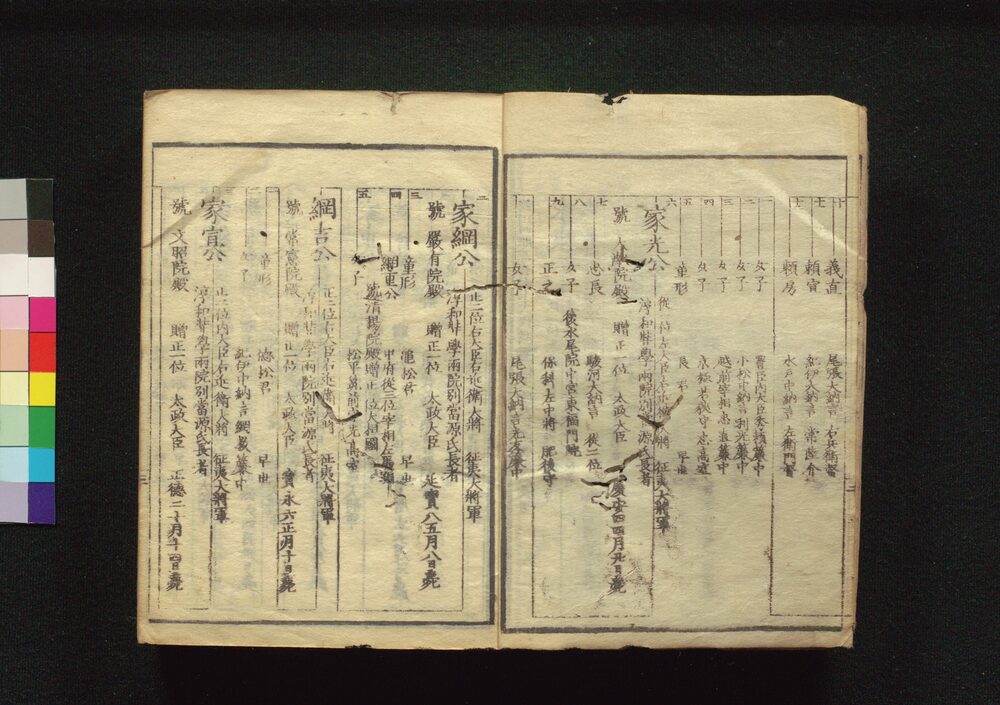 十 義直 尾張大納言 右兵衛督
十 頼宣 紀伊大納言 常陸介
十 頼房 水戸中納言 左衛門督
一 女子
二 女子 小松中納言利光簾中
三 女子 越前宰相忠直簾中
四 女子 京極若狭守忠高室
五 童形 早世
六 家光公 従一位左大臣 征夷大將軍
淳和奨學両院別當源氏長者
號 大猷院殿 贈正一位 太政大臣 慶安四四月廿日薨
七 忠長 駿河大納言 従二位
八 女子 後水尾院中宮東福門院
九 正之 保科左中將 肥後守
十 女子 尾張大納言光友簾中
二 家綱公 正二位右大臣右近衛大將 征夷大將軍
淳和奨學両院別當源氏長者
號 嚴有院殿 贈正一位 太政大臣 延寶八五月八日薨
三 童形 亀松君 早世
四 綱重公 甲府従三位宰相左馬頭
號清揚院殿贈正一位大相國
五 女子 松平
綱吉公 正二位右大臣右近衛大將 征夷大將軍
淳和奨學両院別當源氏長者
號 常憲院殿 贈正一位 太政大臣 寶永六正月十日薨
一 童形 徳松君 早世
二 女子 紀伊中納言綱教簾中
三 家宣公 正二位内大臣右近衛大將 征夷大將軍
淳和奨學両院別當源氏長者
號 文昭院殿 贈正一位 太政大臣 正徳二十月十四日薨